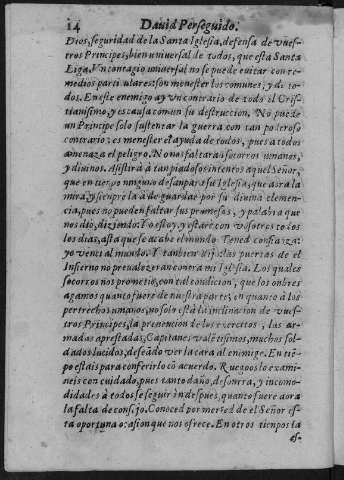 14 Dauid Perseguido.
Dios, seguridad de la Santa Iglesia, defensa de vues-
tros Principes, bien uniuersal de todos, que està Santa
Liga. Vn contagio uniuersal no se puede euitar con re-
medios particulares: son menester los comunes, y de to-
dos. En este enemigo ay vn contrario de todo el Cris-
tianismo, y es causa comun su destruccion. No puede
un Principe solo sustentar la guerra con tan poderoso
contrario: es menester el ayuda de todos, pues a todos
amenaza el peligro. No nos faltaràn socorros umanos,
y diuinos. Asistirà à tan piadosos intentos aquel Señor,
que en tiempo ninguno desanparò su Iglesia, que aora la
mira, y sienpre la à de guardar por su diuina clemen-
cia, pues no pueden faltar sus promesas, y palabra que
nos diò, diziendo: Yo estoy, y estarè con vosotros todos
los dias, asta que se acabe el mundo. Tened confiança:
yo venci al mundo. Y tanbien dijo: las puertas de el
Infierno no preualezeran contra mi Iglesia. Los quales
socorros nos prometiò, con tal condicion, que los onbres
agamos quanto fuere de nuestra parte; en quanto à los
pertrechos umanos, no solo està la inclinacion de vues-
tros Principes, la preuencion de los exercitos, las ar-
madas aprestadas, Capitanes valentisimos, muchos sol-
dados lucidos, deseãdo ver la cara al enemigo. En tiẽ-
po estais para conferirlo cõ acuerdo. Ruegoos lo exami-
neis con cuidado, pues tanto daño, desonra, y incomo-
didades à todos se seguiràn despues, quanto fuere aora
la falta de consejo. Conoced por merced de el Señor es-
ta oportuna ocasion que nos ofrece. En otros tienpos la
es-